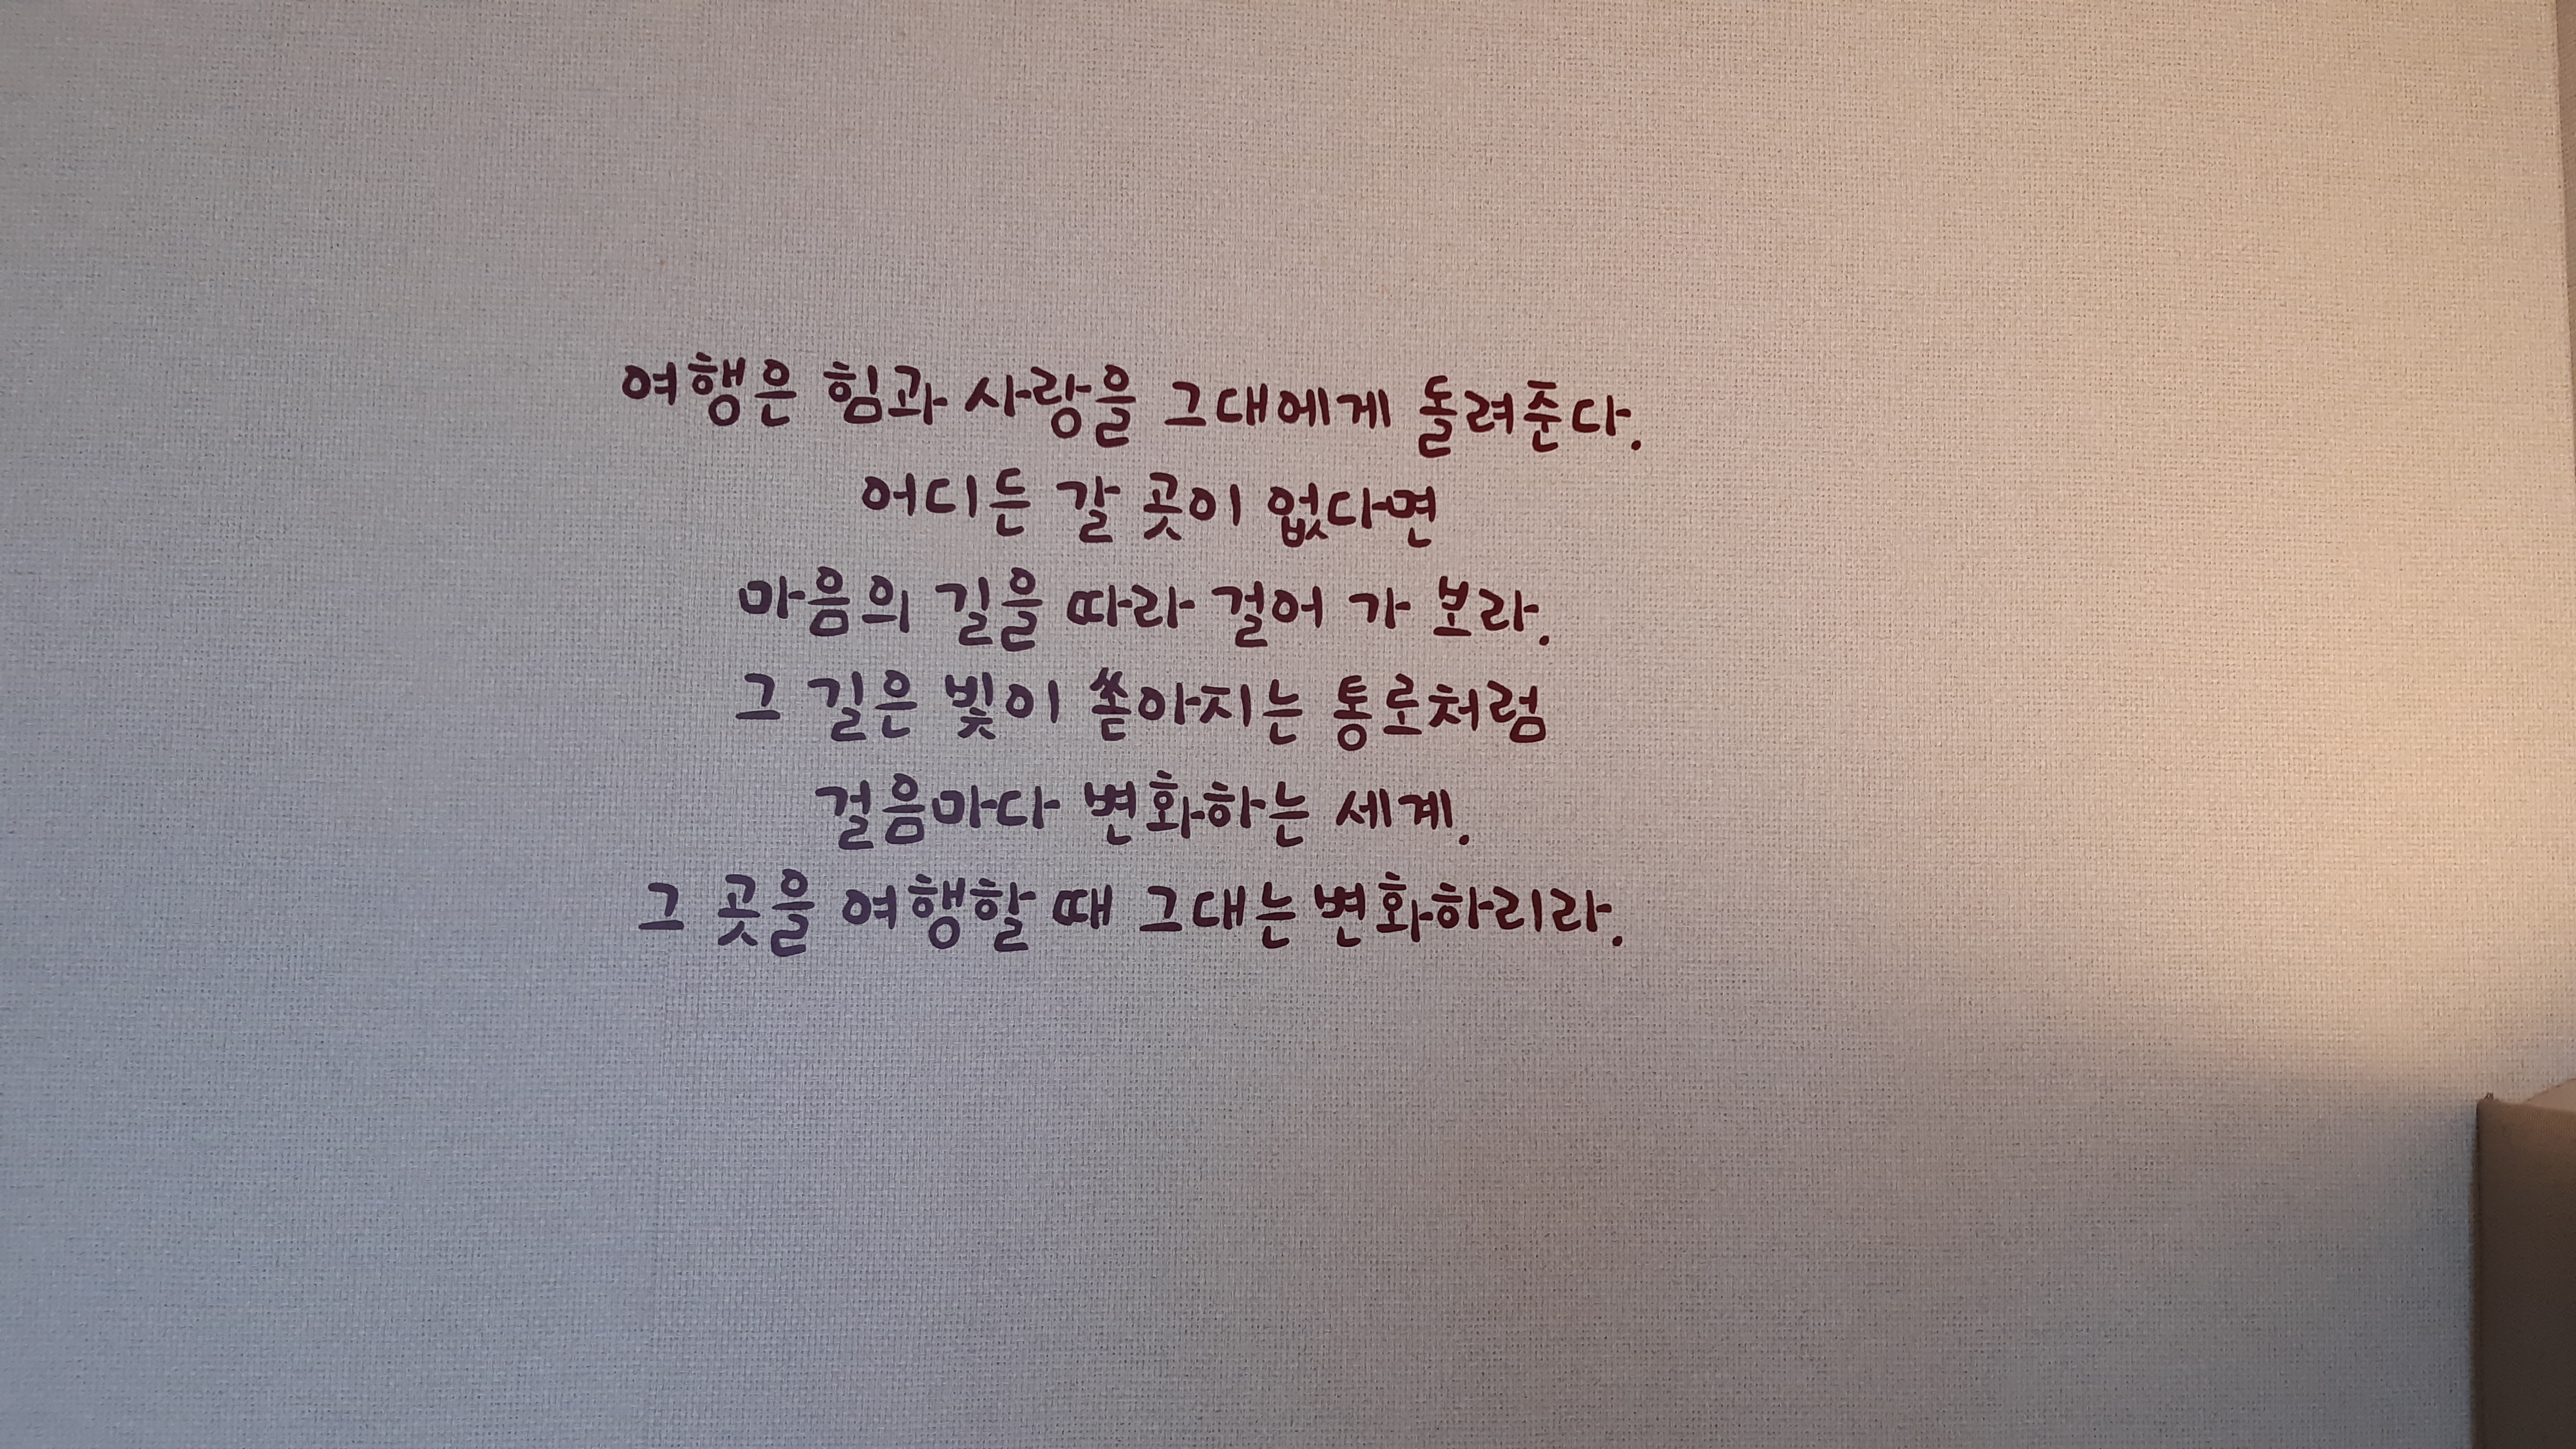 여행은 힘과 사랑을 그대에게 돌려준다.
어디든 갈 곳이 없다면
마음의 길을 따라 걸어 가 보라.
그 길은 빛이 쏟아지는 통로처럼
걸음마다 변화하는 세계.
그 곳을 여행할 때 그대는 변화하리라.